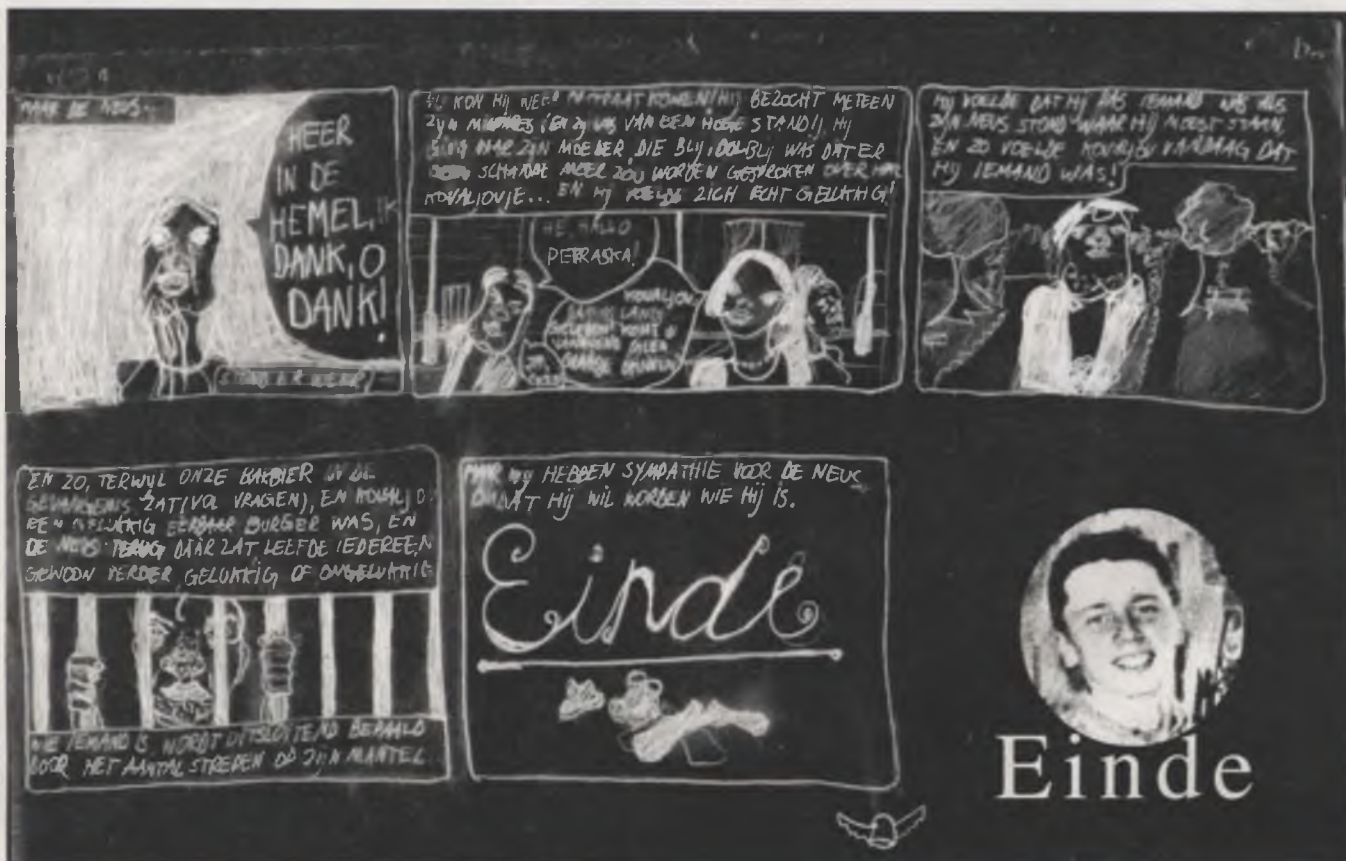 HEER
IN DE
HEMEL, IK
DANK, O
DANK!
KON HIJ BEZOCHT METEEN
ZIJN EN ZIJ WAS VAN EEN HOGE STAND!), HIJ
GING NAAR ZIJN MOEDER, DIE BLIJ, DOLBLIJ WAS DAT ER
SCHANDE MEER ZOU WORDEN GESPROKEN OVER
KOVALJOVJE... EN HIJ VOELDE ZICH ECHT GELUKKIG!
HE, HALLO
PETRASKA!
KOVALJOV
LANG
GELEDEN! KOMT U
HIJ VOELDE DAT HIJ PAS IEMAND WAS ALS
ZIJN NEUS STOND WAAR HIJ MOEST STAAN.
EN ZO VOELDE KOVALJOV VANDAAG DAT
HIJ IEMAND WAS!
EN ZO, TERWIJL ONZE BARBIER IN DE
GEVANGENIS ZAT (VOL VRAGEN), EN
EEN GELUKKIG EERBAAR BURGER WAS, EN
DE NEUS TERUG DAAR ZAT LEEFDE IEDEREEN
GEWOON VERDER GELUKKIG OF ONGELUKKIG
WIE IEMAND IS, WORDT UITSLUITEND BEPAALD
DOOR HET AANTAL STREPEN OP ZIJN MANTEL.
MAAR WIJ HEBBEN SYMPATHIE VOOR DE NEUS
OMDAT HIJ WIL WORDEN WIE HIJ IS.
Einde
Einde